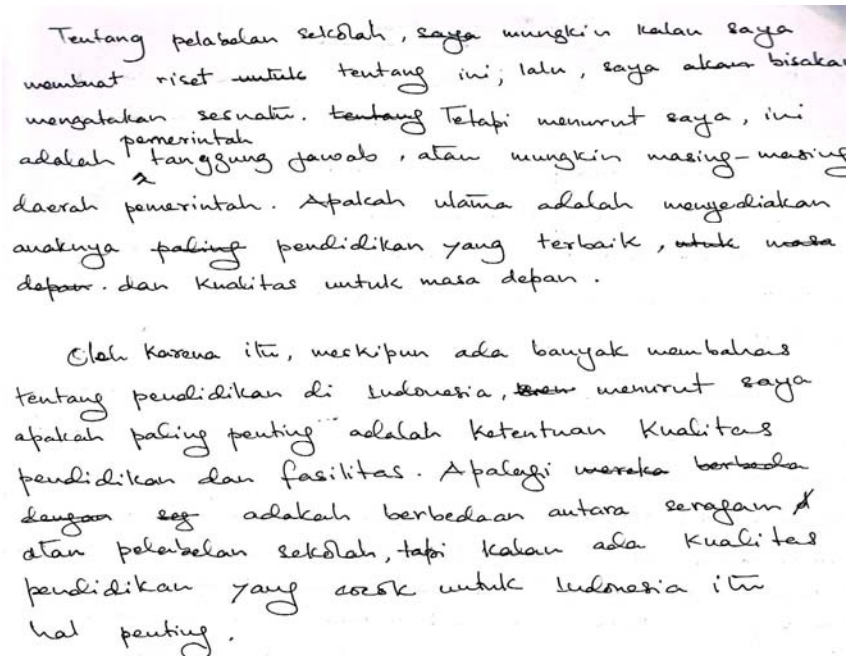 Tentang pelabelan sekolah, saya mungkin kalau saya
membuat riset untuk tentang ini; lalu, saya akan bisakan
mengatakan sesuatu. tentang Tetapi menurut saya, ini
pemerintah
adalah tanggung jawab, atau mungkin masing-masing
daerah pemerintah. Apakah utama adalah menyediakan
anaknya paling pendidikan yang terbaik, untuk masa
depan. dan kualitas untuk masa depan.
Oleh karena itu, meskipun ada banyak membahas
tentang pendidikan di Indonesia, menurut saya
apakah paling penting adalah ketentuan kualitas
pendidikan dan fasilitas. Apalagi mereka berbeda
dengan seg adakah berbedaan antara seragam
atau pelabelan sekolah, tapi kalau ada kualitas
pendidikan yang cocok untuk Indonesia itu
hal penting.